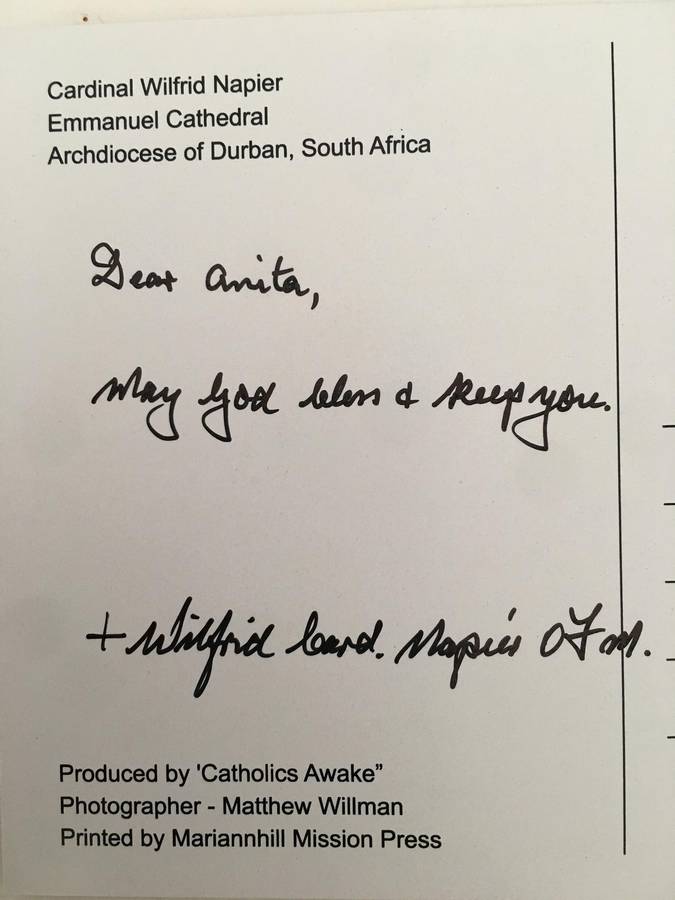 Cardinal Wilfrid Napier
Emmanuel Cathedral
Archdiocese of Durban, South Africa
Dear Anita,
May God bless & keep you.
+ Wilfrid Card. Napier OFM.
Produced by 'Catholics Awake”
Photographer - Matthew Willman
Printed by Mariannhill Mission Press